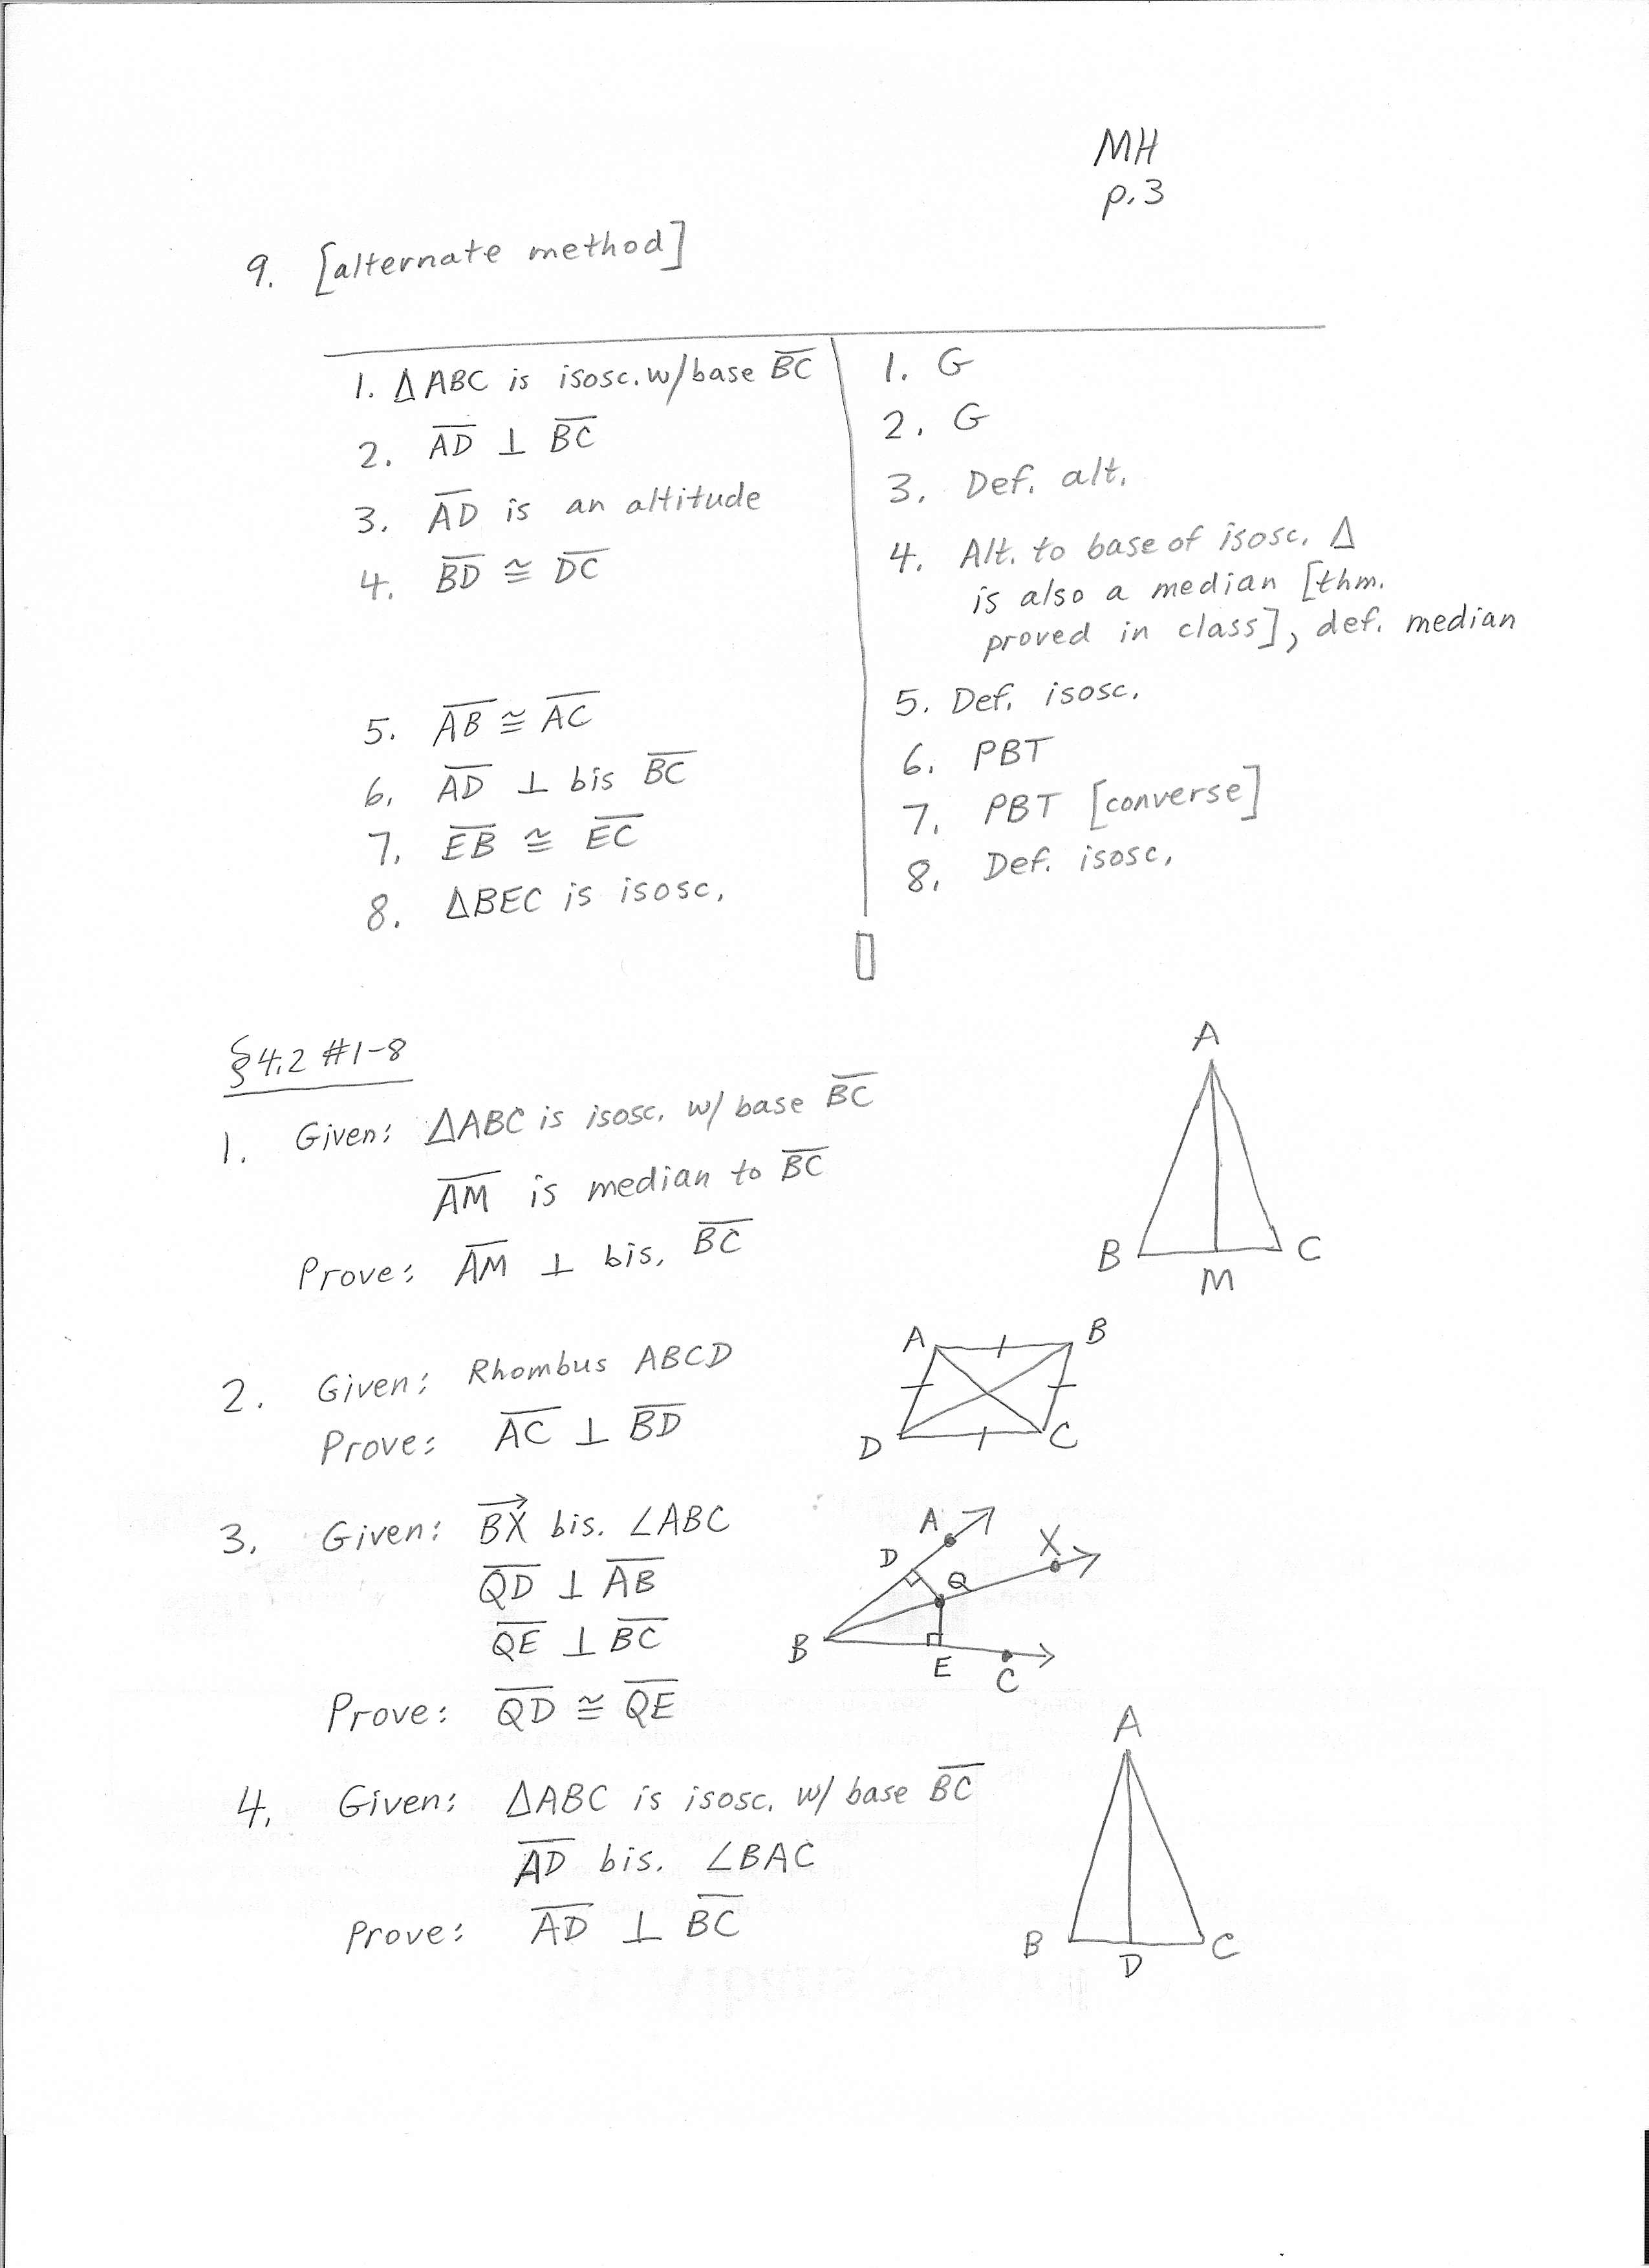 MH
p.3
9. [alternate method]
1. ΔABC is isosc. w/base B̅C̅
1. G
2. A̅D̅ ⊥ B̅C̅
2. G
3. A̅D̅ is an altitude
3. Def. alt.
4. B̅D̅ ≅ D̅C̅
4. Alt. to base of isosc. Δ
is also a median [thm.
proved in class], def. median
5. A̅B̅ ≅ A̅C̅
5. Def. isosc.
6. A̅D̅ ⊥ bis B̅C̅
6. PBT
7. E̅B̅ ≅ E̅C̅
7. PBT [converse]
8. ΔBEC is isosc.
8. Def. isosc.
§4.2 #1-8
1. Given: ΔABC is isosc. w/ base B̅C̅
A̅M̅ is median to B̅C̅
Prove: A̅M̅ ⊥ bis. B̅C̅
A
B
M
C
2. Given: Rhombus ABCD
Prove: A̅C̅ ⊥ B̅D̅
A
B
D
C
3. Given: B⃗X⃗ bis. ∠ABC
Q̅D̅ ⊥ A̅B̅
Q̅E̅ ⊥ B̅C̅
Prove: Q̅D̅ ≅ Q̅E̅
A
X
D
Q
B
E
C
4. Given: ΔABC is isosc. w/ base B̅C̅
A̅D̅ bis. ∠BAC
Prove: A̅D̅ ⊥ B̅C̅
A
B
D
C